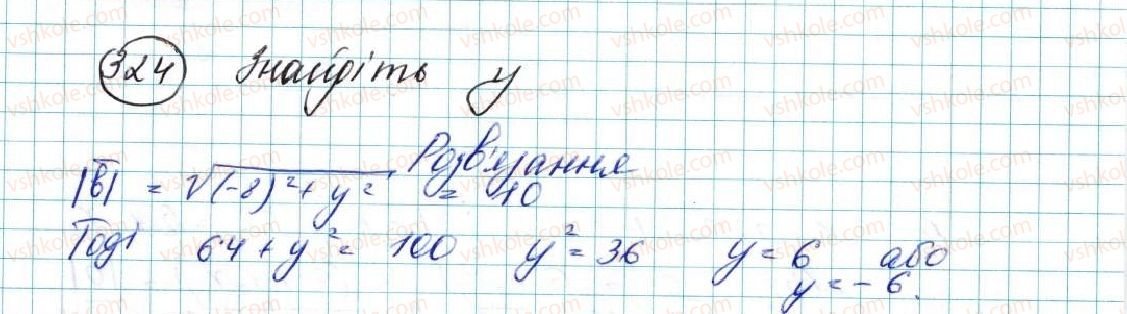 324 Знайдіть y
Розв'язання
|b̅| = √(-8)² + y² = 10
Тоді 64 + y² = 100 y² = 36 y = 6 або
y = - 6.